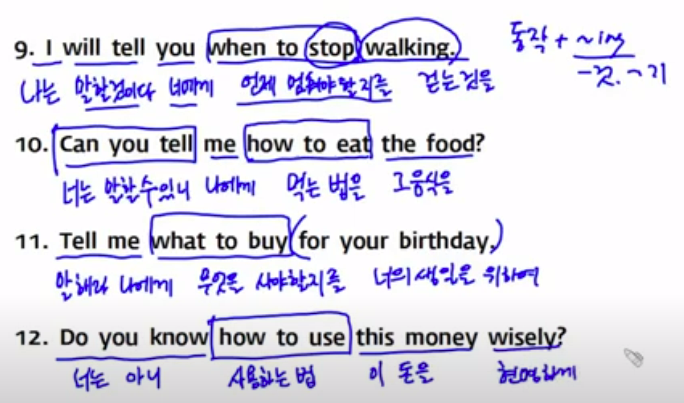 9. I will tell you when to stop walking. 동작 + ~ing
-것. ~기
나는 말할것이다 너에게 언제 멈춰야할지를 걷는것을
10. Can you tell me how to eat the food?
너는 말할수있니 나에게 먹는 법을 그음식을
11. Tell me what to buy for your birthday.
말해라 나에게 무엇을 사야할지를 너의생일을 위하여
12. Do you know how to use this money wisely?
너는 아니 사용하는 법 이 돈을 현명하게